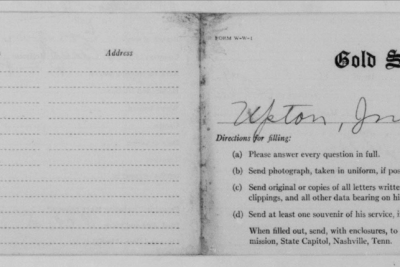 Address
FORM W-W-1
Gold S
Upton, Jn
Directions for filling:
(a) Please answer every question in full.
(b) Send photograph, taken in uniform, if pos
(c) Send original or copies of all letters writte
clippings, and all other data bearing on hi
(d) Send at least one souvenir of his service, i
When filled out, send, with enclosures, to
mission, State Capitol, Nashville, Tenn.